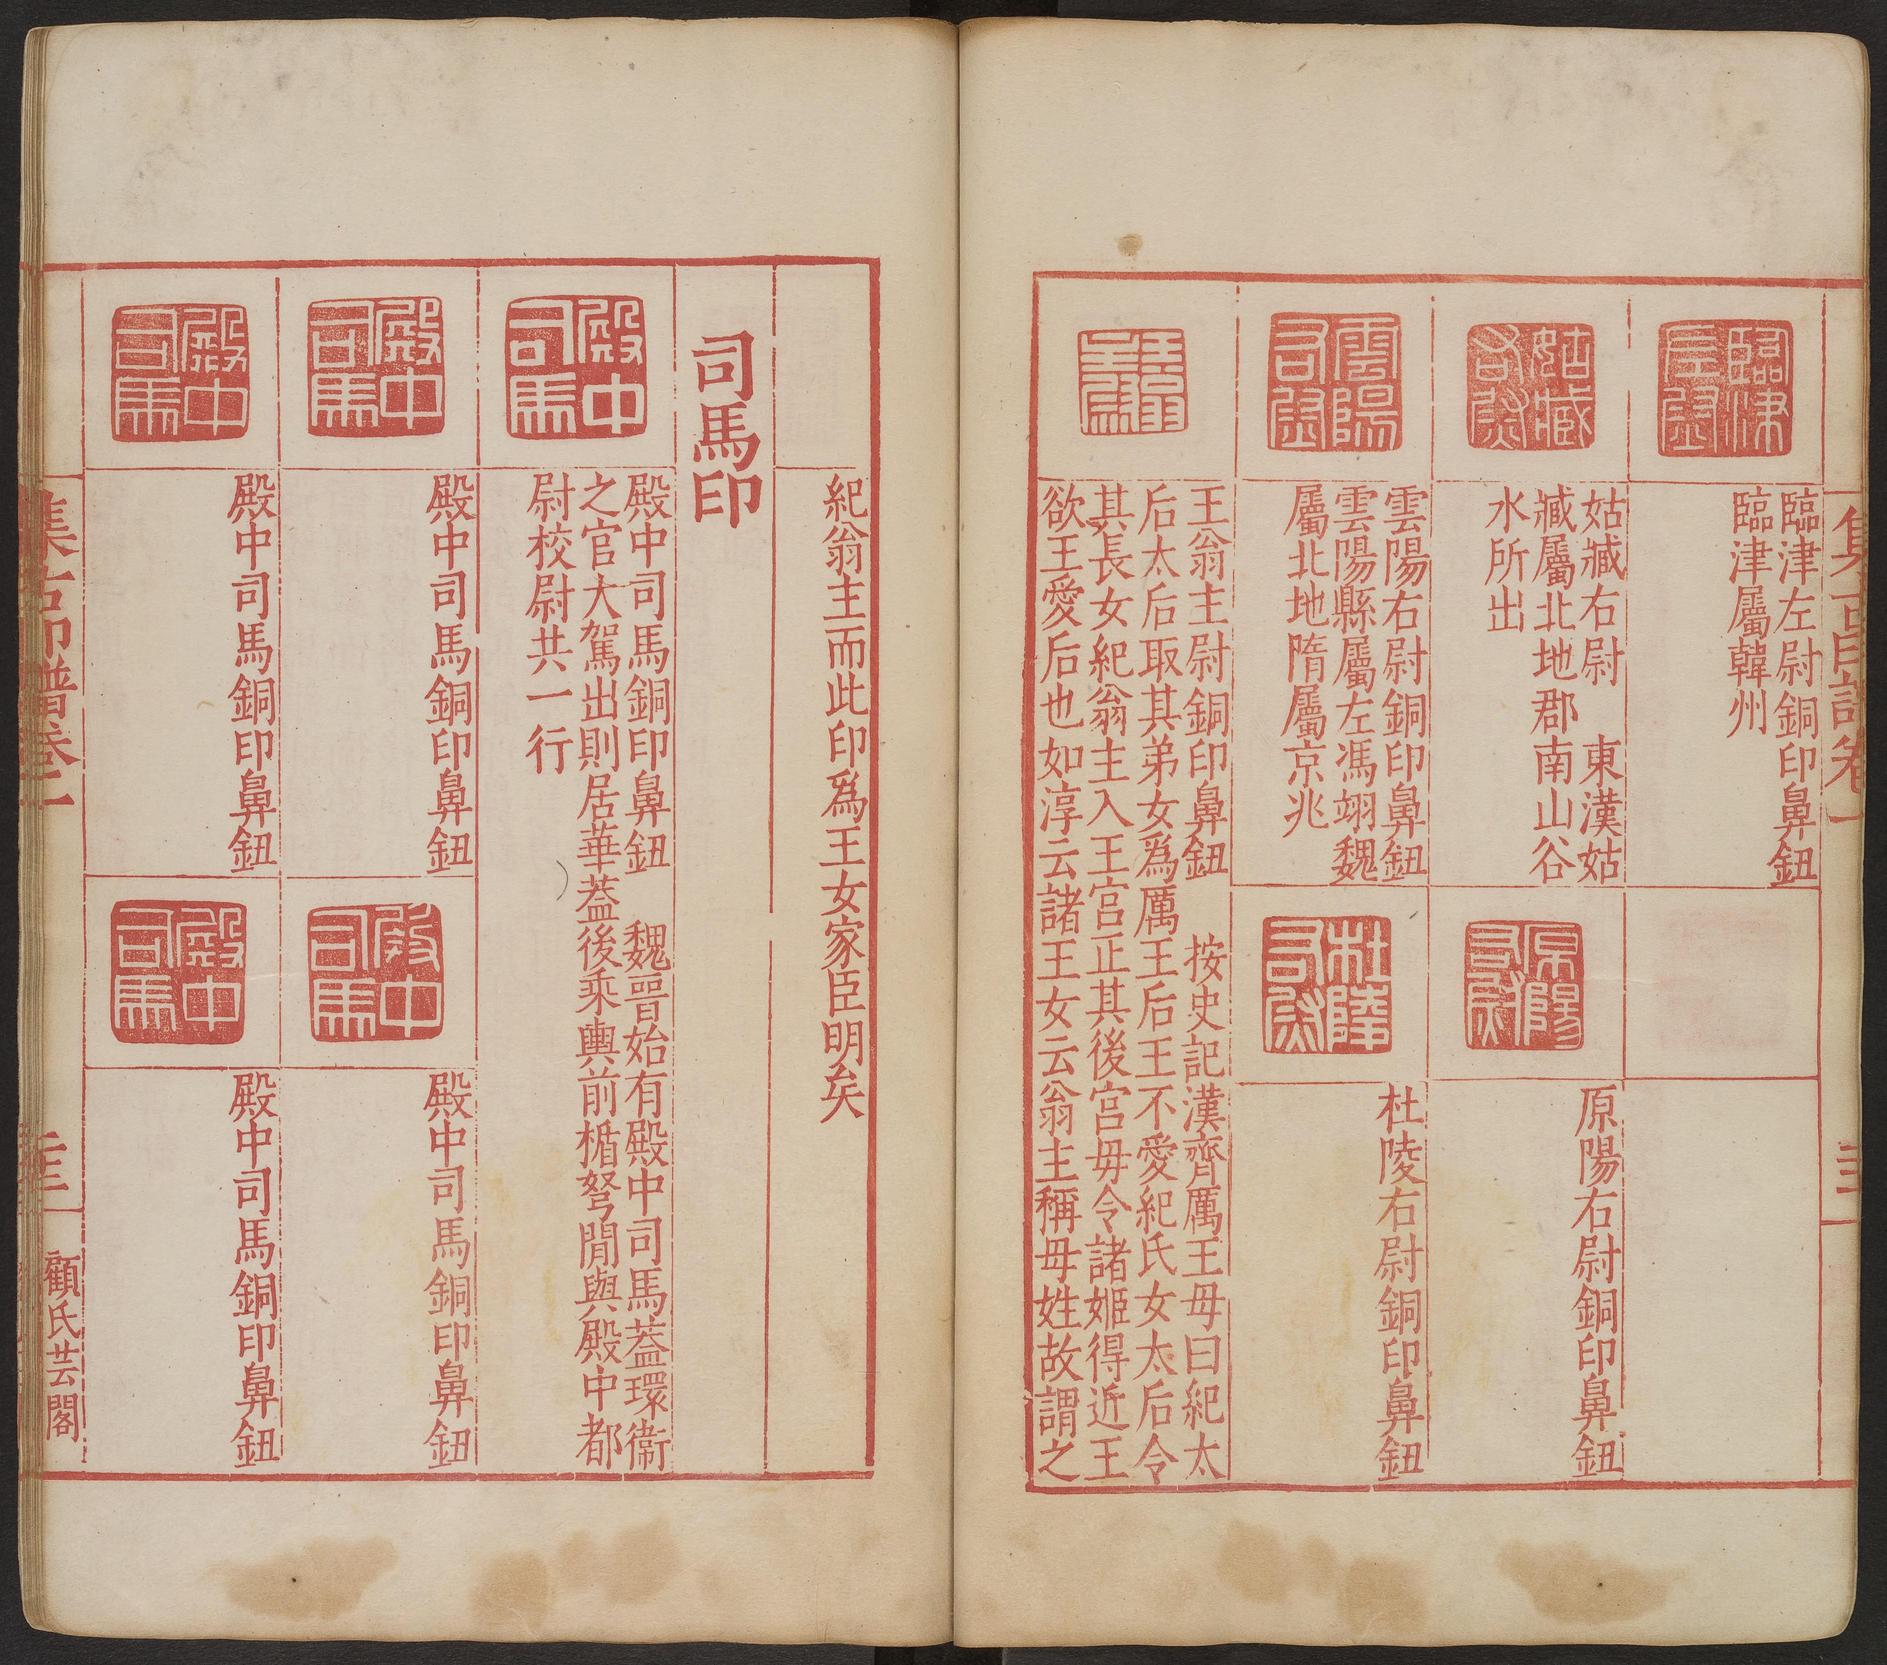 臨津左尉
臨津左尉銅印鼻鈕
臨津屬韓州
姑臧右尉
姑臧右尉　東漢姑
臧屬北地郡南山谷
水所出
原陽右尉
原陽右尉銅印鼻鈕
雲陽右尉
雲陽右尉銅印鼻鈕
雲陽縣屬左馮翊魏
屬北地隋屬京兆
杜陵右尉
杜陵右尉銅印鼻鈕
王翁主尉
王翁主尉銅印鼻鈕　按史記漢齊厲王母曰紀太
后太后取其弟女爲厲王后王不愛紀氏女太后令
其長女紀翁主入王宮正其後宮毋令諸姬得近王
欲王愛后也如淳云諸王女云翁主稱母姓故謂之
紀翁主而此印爲王女家臣明矣
司馬印
殿中司馬
殿中司馬銅印鼻鈕　魏晉始有殿中司馬蓋環衞
之官大駕出則居華蓋後乘輿前楯弩閒與殿中都
尉校尉共一行
殿中司馬
殿中司馬銅印鼻鈕
殿中司馬
殿中司馬銅印鼻鈕
殿中司馬
殿中司馬銅印鼻鈕
殿中司馬
殿中司馬銅印鼻鈕
集古印譜卷二
顧氏芸閣